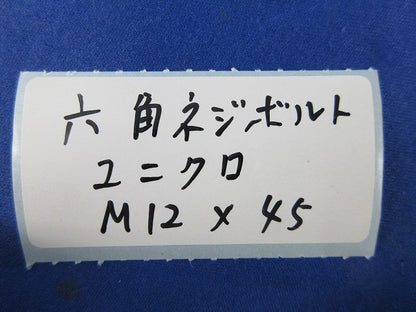 六角ネジボルト
ユニクロ
M12 x 45